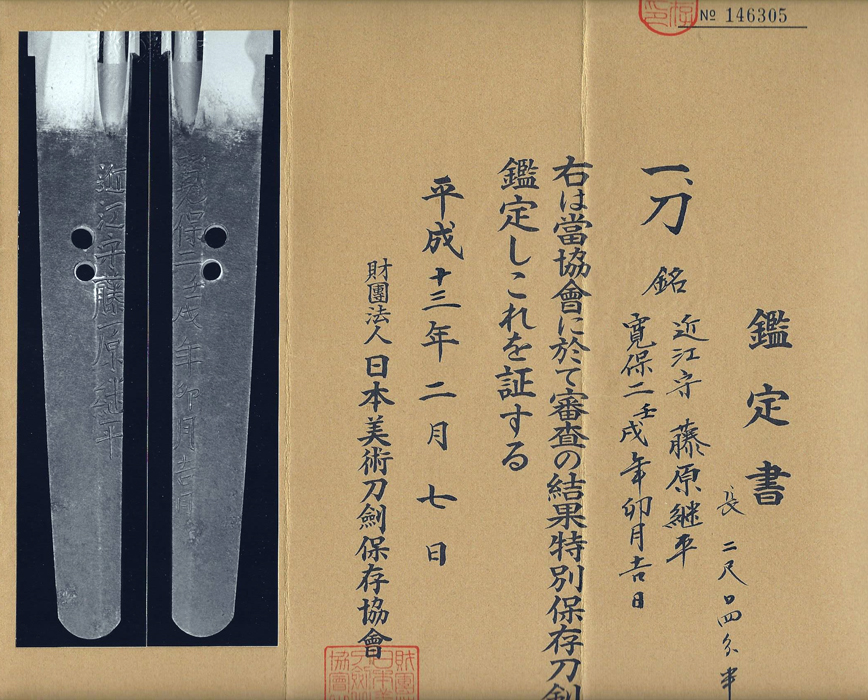 № 146305
鑑定書
長 二尺 四分半
一、刀 銘 近江守 藤原継平
寛保二壬戌年卯月吉日
右は當協會に於て審査の結果特別保存刀剣
鑑定しこれを証する
平成十三年二月七日
財團法人 日本美術刀劍保存協會
寛保二壬戌年卯月吉日
近江守藤原継平